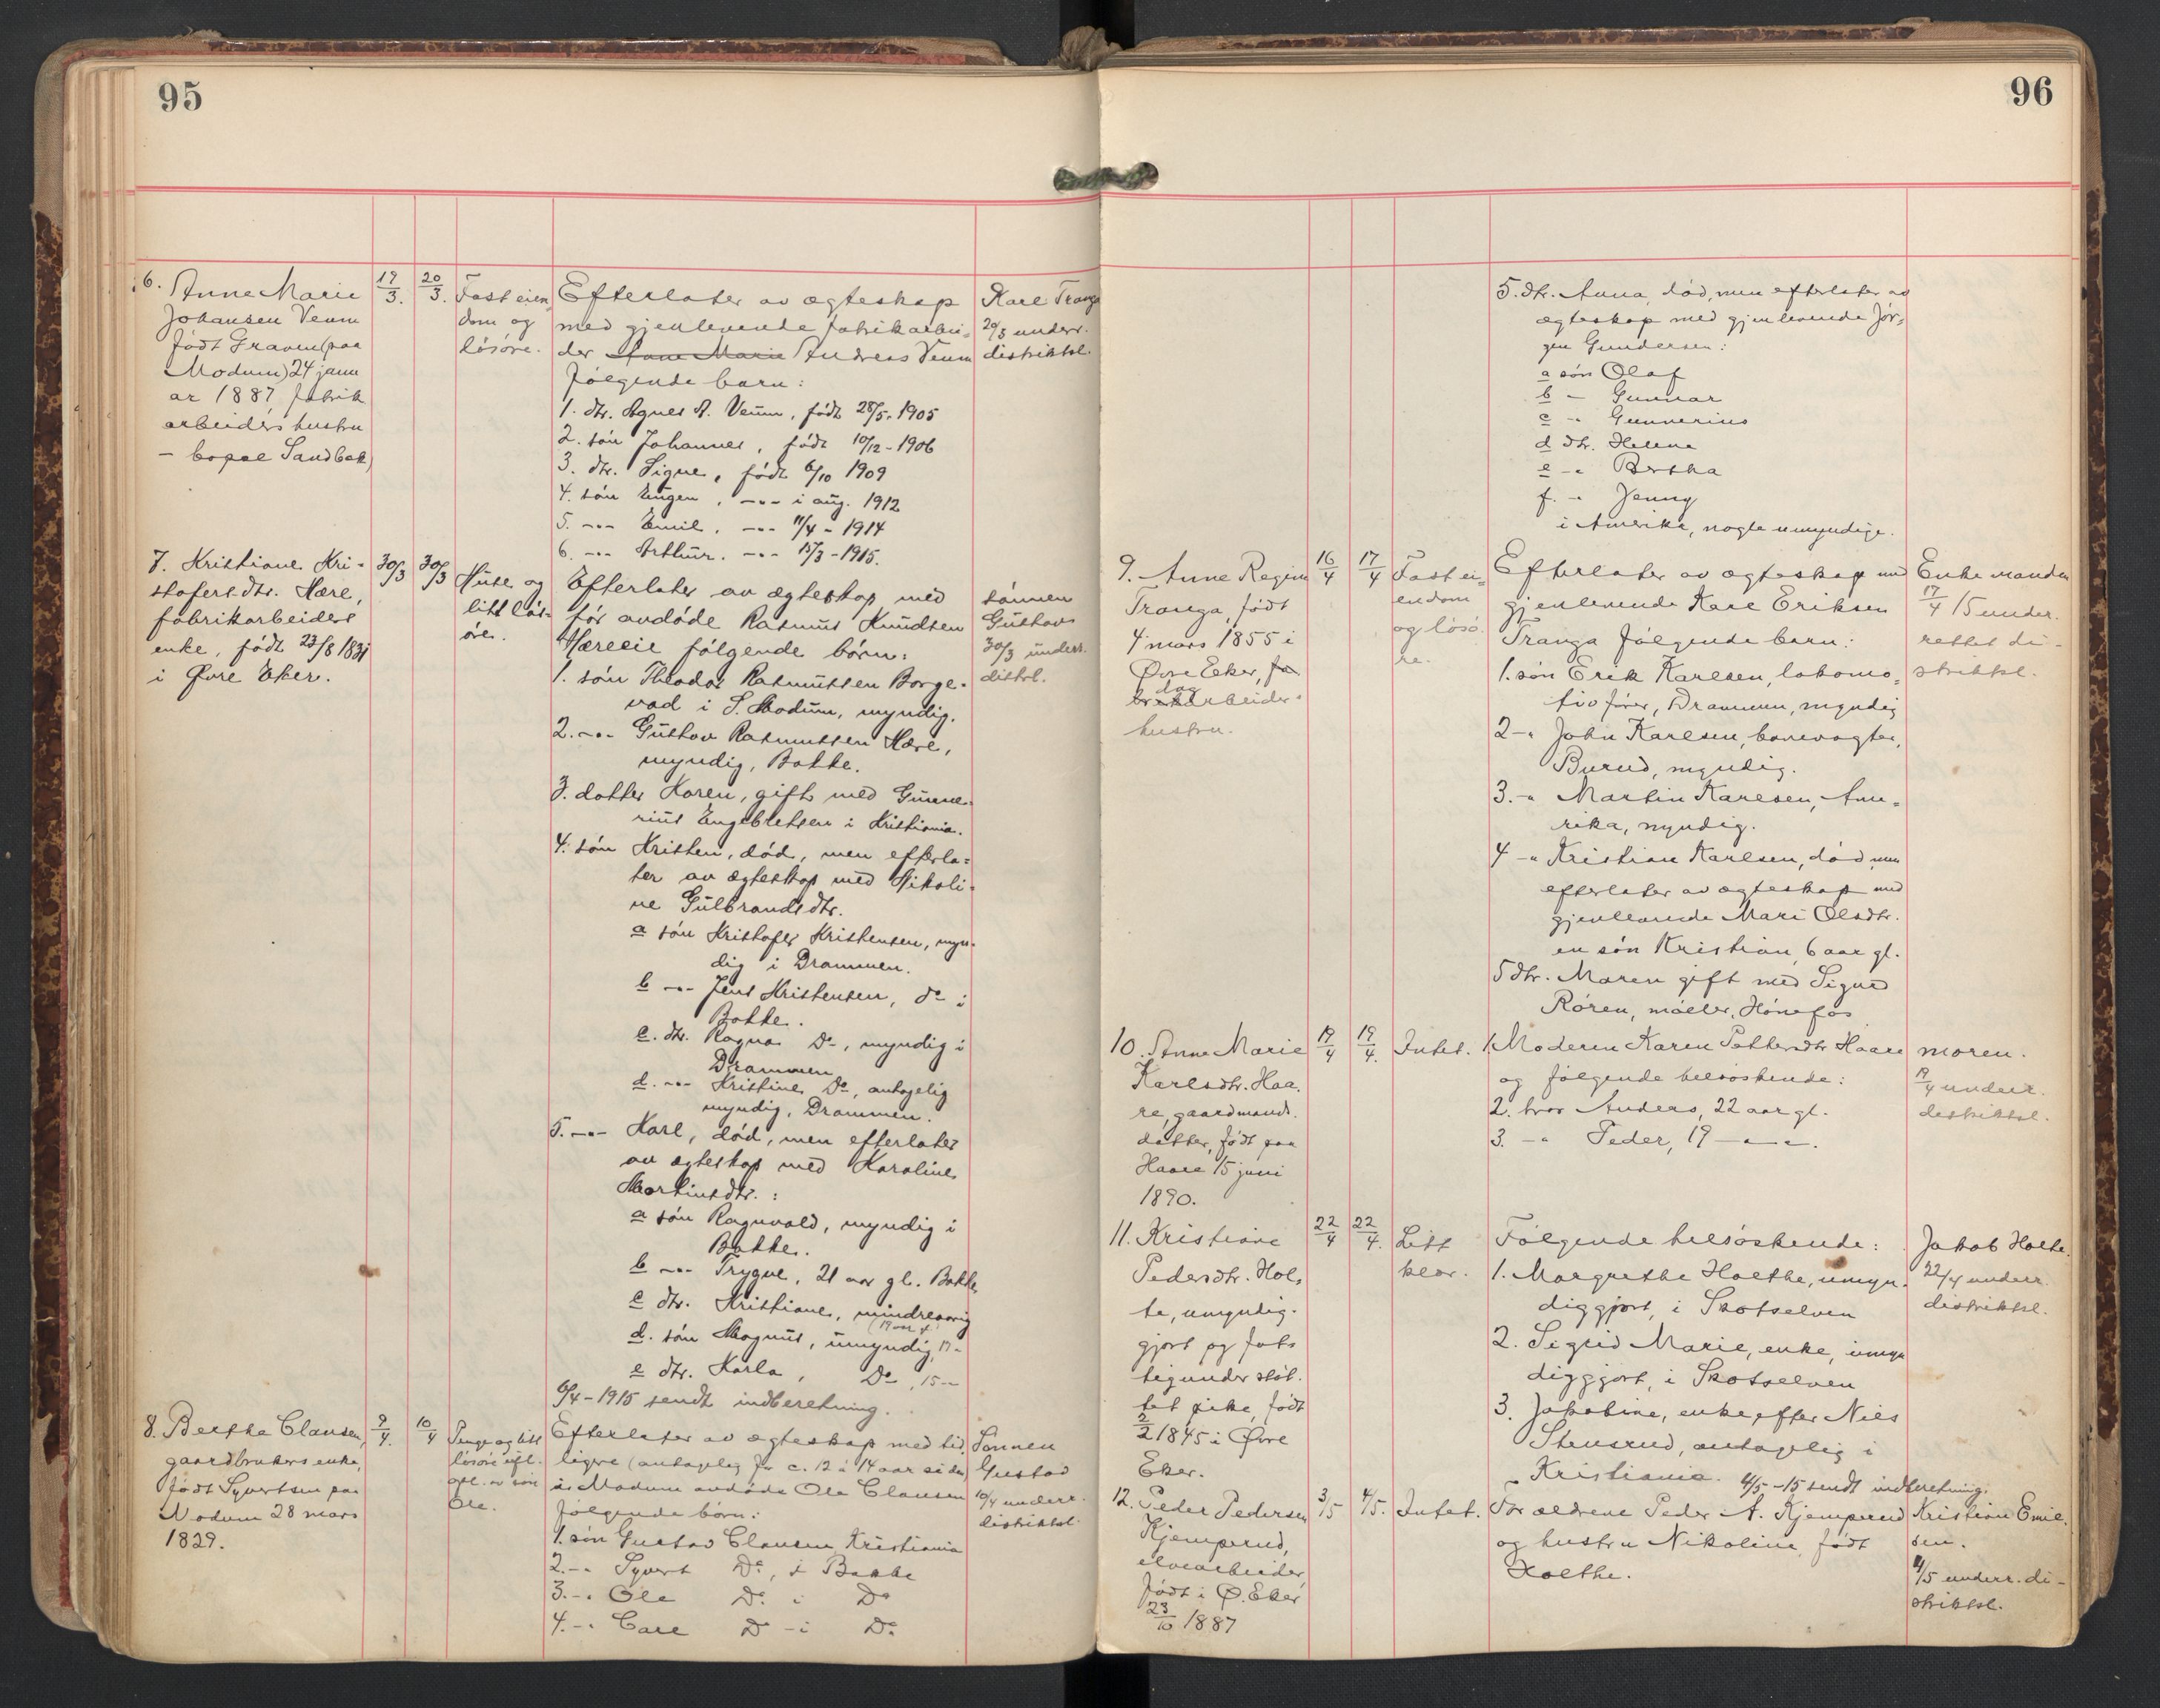 95
6. Anne Marie
Johansen Veum
født Graven (paa
Modum) 24 janu
ar 1887 fabrik
arbeiders hustru
– bopæl Sandbak)
19/3.
20/3.
Fast eien
dom og
løsøre.
Efterlater av ægteskap
med gjenlevende fabrikarbei-
der Anne Marie Andreas Veum
følgende barn:
1. dtr. Agnes A. Veum, født 28/5-1905
2. søn Johannes, født 10/12-1906
3. dtr. Signe, født 6/10 1909
4. søn Eugen, -"- i aug. 1912
5. -"- Emil, -"- 11/4 - 1914
6. -"- Arthur. -"- 15/3-1915.
Karl Tranga
20/3 underr.
distriktsl.
7. Kristiane Kri-
stofersdtr. Hære,
fabrikarbeiders
enke, født 23/8 1831
i Øvre Eker.
30/3
30/3
Huse og
litt løs-
øre.
Efterlater av ægteskap med
før avdøde Rasmus Knudsen
Hæreeie følgende børn:
1. søn Theodor Rasmussen Borge-
vad i S. Modum, myndig.
2. -"- Gustav Rasmussen Hære,
myndig, Bakke.
3. datter Karen, gift med Gunne-
rius Engebretsen i Kristiania.
4. søn Kristen, død, men efterla-
ter av ægteskap med Nikoli-
ne Gulbrandsdtr.
a søn Kristofer Kristensen, myn-
dig i Drammen.
b -"- Jens Kristensen, do i
Bakke.
c. dtr. Ragna Do, myndig i
Drammen
d. -"- Kristine Do, antagelig
myndig, Drammen.
5. -"- Karl, død, men efterlater
av ægteskap med Karoline
Martinsdtr.:
a søn Ragnvald, myndig i
Bakke.
b -"- Trygve, 21 aar gl. Bakke
c dtr. Kristiane, mindreaarig
(19 aar
d. søn Magnus, umyndig, 17 -
e dtr. Karla, Do, 15 -
6/4-1915 sendt indberetning.
sønnen
Gustav
30/3 underr.
distrl.
8. Berthe Clausen,
gaardbrukers enke,
født Syvertsen paa
Modum 28 mars
1829.
9/4.
10/4
Penge og litt
løsøre
av søn
Ole.
Efterlater av ægteskap med tid
ligere (antagelig for c. 12 à 14 aar siden)
i Modum avdøde Ole Clausen
følgende børn:
1. søn Gustav Clausen, Kristiania
2. -" Syvert Do, i Bakke
3. -" Ole Do i Do
4. -" Carl Do - i Do
Sønnen
Gustav
10/4 underr.
distriktsl.
96
5. dtr. Anna, død, men efterlater av
ægteskap med gjenlevende Jør-
gen Gundersen:
a søn Olaf
b - Gunnar
c -" Gunnerius
d dtr. Helene
e -" Bertha
f. -" Jenny
i Amerika, nogle umyndige.
9. Anne Regine
Tranga, født
4 mars 1855 i
Øvre Eker, fa
dag
brikarbeider-
hustru.
16/4
17/4
Fast ei-
endom
og løsø-
re.
Efterlater av ægteskap med
gjenlevende Karl Eriksen
Tranga følgende barn:
1. søn Erik Karlsen, lokomo-
tivfører, Drammen, myndig
2 -" John Karlsen, banevogter,
Burud, myndig.
3. -" Martin Karlsen, Ame-
rika, myndig.
4 -" Kristian Karlsen, død, men
efterlater av ægteskap med
gjenlevende Mari Olsdtr.
en søn Kristian, 6 aar gl.
5 dtr. Maren gift med Sigurd
Røren, møller, Hønefos
Enkemanden
17/4 15 under-
rettet di-
striktsl.
10. Anne Marie
Karlsdtr. Haa-
re, gaardmands-
datter, født paa
Haare 15 juni
1890.
19/4
19/4.
Intet.
1. Moderen Karen Pettersdtr. Haare
og følgende helsøskende:
2. bror Anders, 22 aar gl.
3. -" Peder, 19 -"-"-.
moren.
19/4 underr.
distriktsl.
11. Kristiane
Pedersdtr. Hol-
te, umyndig-
gjort og fat-
tigunderstøt-
tet pike, født
2/2 1845 i Øvre
Eker.
22/4
22/4.
Litt
klær.
Følgende helsøskende:
1. Margrethe Holthe, umyn-
diggjort, i Skotselven
2. Sigrid Marie, enke, umyn
diggjort, i Skotselven
3. Jakobine, enke efter Niels
Stensrud, antagelig i
Kristiania. 4/5 -15 sendt indberetning.
Jakob Holte.
22/4 underr.
distriktsl.
12. Peder Pedersen
Kjemperud,
elvearbeider
født i Ø. Eker
23/10 1887
3/5
4/5.
Intet.
Forældrene Peder A. Kjemperud
og hustru Nikoline, født
Holthe.
Kristian Emil-
sen.
4/5 underr. di-
striktsl.